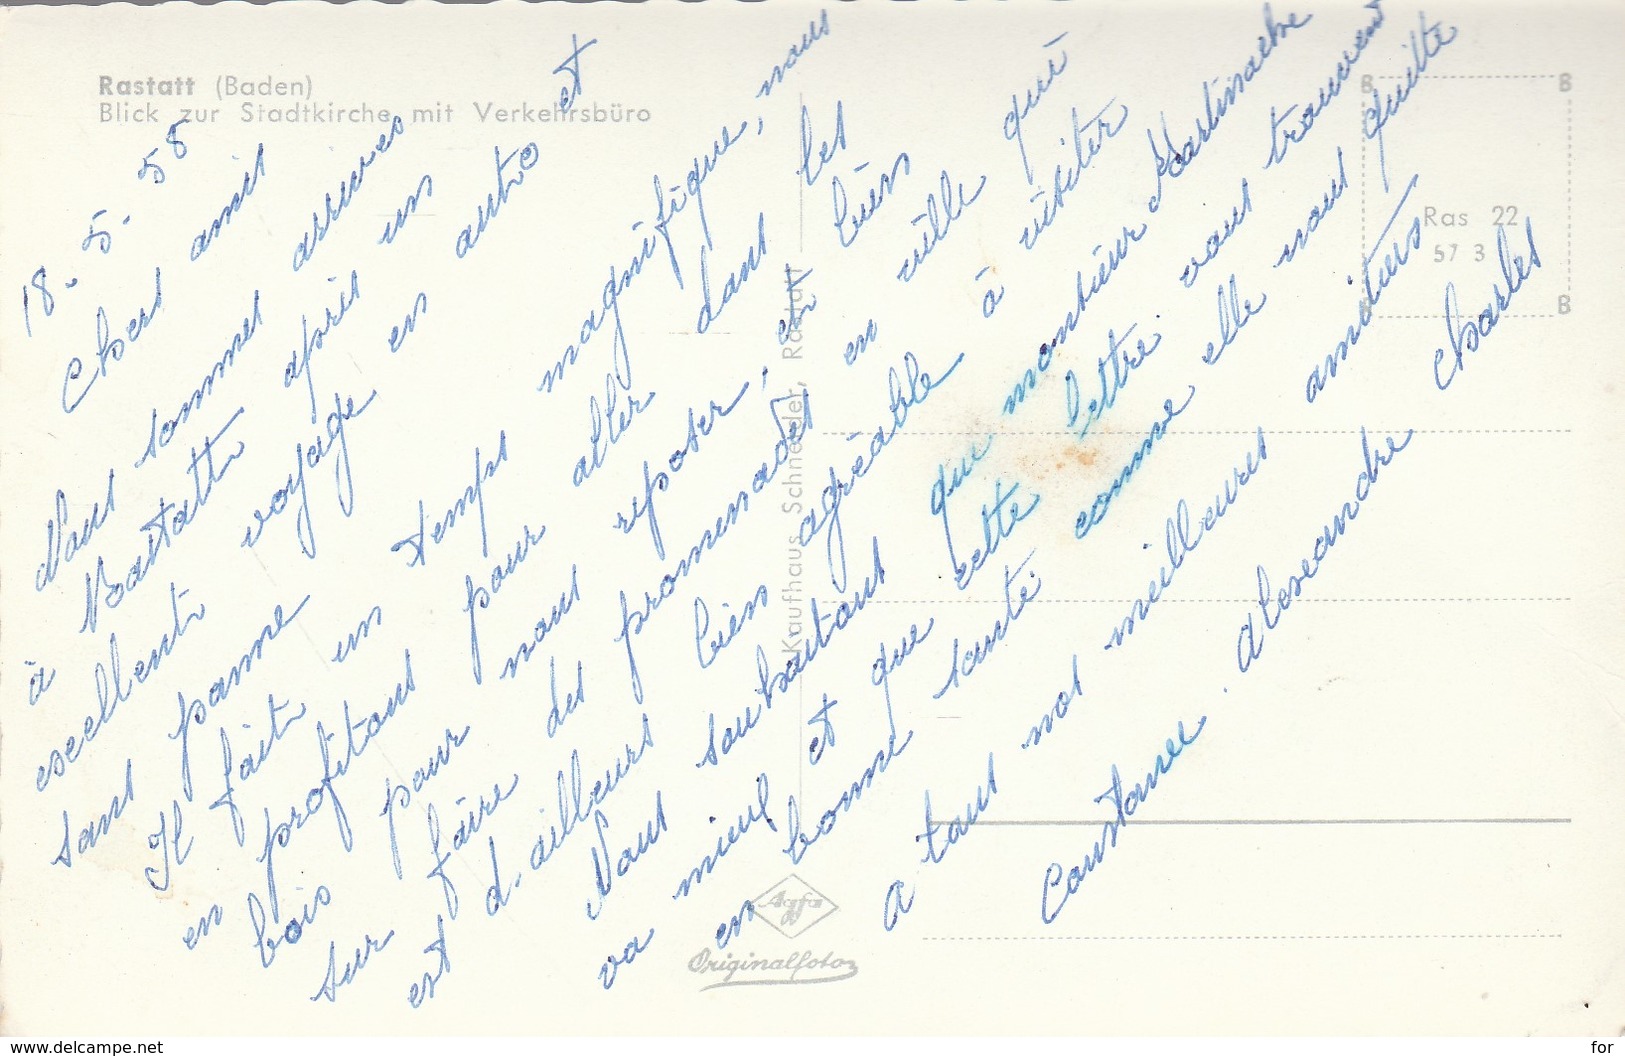 Rastatt (Baden)
Blick zur Stadtkirche mit Verkehrsbüro
18. 5. 58
Chers amis
Nous sommes arrivés
à Rastatt après un
excellent voyage en auto et
sans panne
Il fait un temps magnifique, nous
en profitons pour aller dans les
bois pour nous reposer, et bien
sur faire des promenades en ville qui
est d'ailleurs bien agréable à visiter
Nous souhaitons que monsieur
va mieux et que cette lettre vous trouvent
en bonne santé comme elle nous quitte
a tous nos meilleures amitiers
Constance. Alexandre Charles
Kaufhaus Schneider, Rastatt
Agfa
Originalfoto
B B
Ras 22
57 3
B B
www.delcampe.net
for